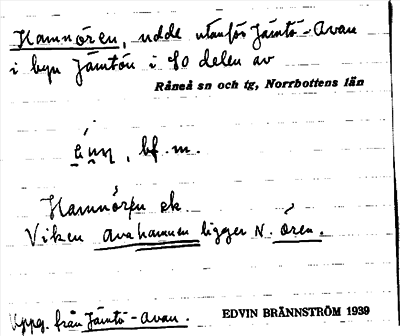 Hamnören, udde utanför Jämtö-Avan
i byn Jämtön i SO delen av
Råneå sn och tg, Norrbottens län
bf. m.
Hamnören ek.
Viken Avahamnen ligger N. ören.
Uppg. från Jämtö-Avan.
EDVIN BRÄNNSTRÖM 1939